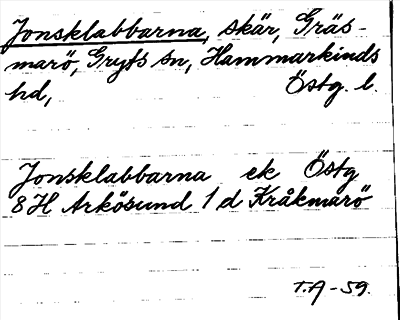 Jonsklabbarna, skär, Gräs-
marö, Gryts sn, Hammarkinds
hd, Östg. l.
Jonsklabbarna ek Östg
8H Arkösund 1 d Kråkmarö
T.A-59.